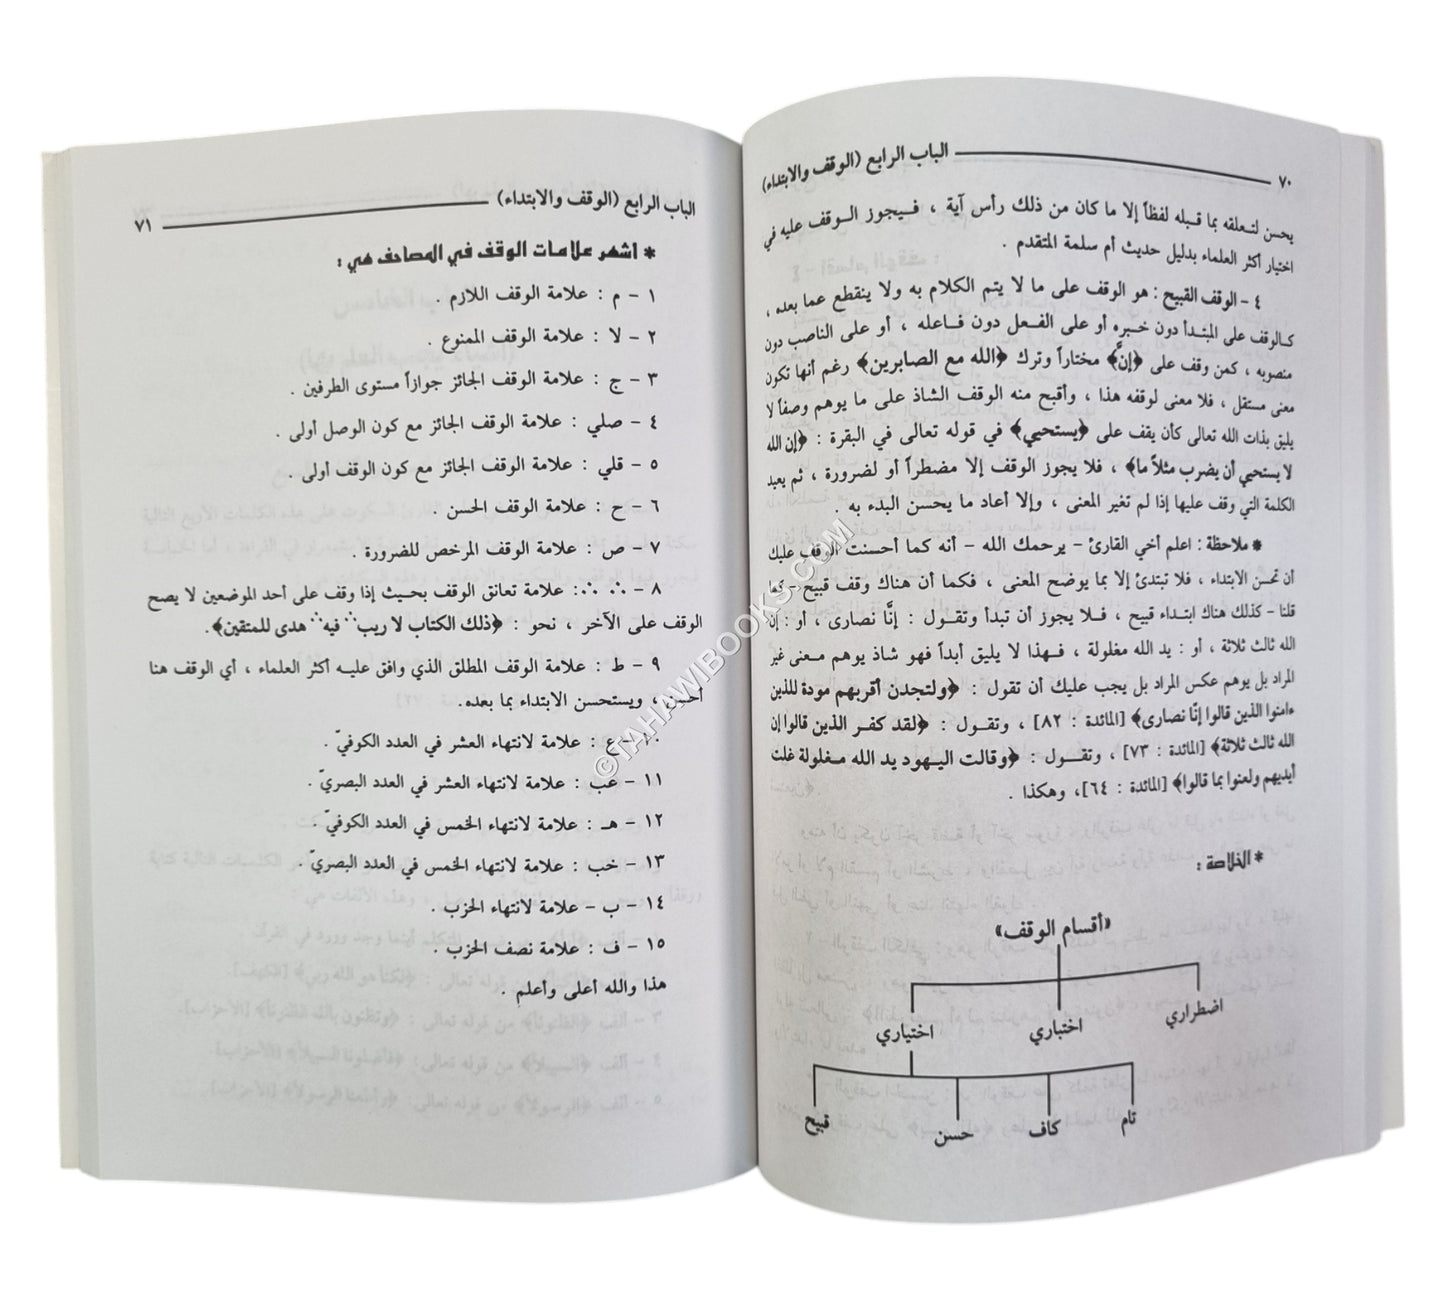 ٧٠ الباب الرابع (الوقف والابتداء)
يحسن لتعلقه بما قبله لفظاً إلا ما كان من ذلك رأس آية ، فيجوز الوقف عليه في
اختيار أكثر العلماء بدليل حديث أم سلمة المتقدم .
٤ - الوقف القبيح : هو الوقف على ما لا يتم الكلام به ولا ينقطع عما بعده ،
كالوقف على المبتدأ دون خبره أو على الفعل دون فاعله ، أو على الناصب دون
منصوبه ، كمن وقف على ﴿إنَّ﴾ مختاراً وترك ﴿الله مع الصابرين﴾ رغم أنها تكون
معنى مستقل ، فلا معنى لوقفه هذا ، وأقبح منه الوقف الشاذ على ما يوهم وصفاً لا
يليق بذات الله تعالى كأن يقف على ﴿يستحيي﴾ في قوله تعالى في البقرة : ﴿إن الله
لا يستحيي أن يضرب مثلاً ما﴾ ، فلا يجوز الوقف إلا مضطراً أو لضرورة ، ثم يعيد
الكلمة التي وقف عليها إذا لم تغير المعنى ، وإلا أعاد ما يحسن البدء به .
* ملاحظة : اعلم أخي القارئ - يرحمك الله - أنه كما أحسنت الوقف عليك
أن تحسن الابتداء ، فلا تبتدئ إلا بما يوضح المعنى ، فكما أن هناك وقف قبيح - كما
قلنا - كذلك هناك ابتداء قبيح ، فلا يجوز أن تبدأ وتقول : إنَّا نصارى ، أو : إن
الله ثالث ثلاثة ، أو : يد الله مغلولة ، فهذا لا يليق أبداً فهو شاذ يوهم معنى غير
المراد بل يوهم عكس المراد بل يجب عليك أن تقول : ﴿ولتجدن أقربهم مودة للذين
ءامنوا الذين قالوا إنّا نصارى﴾ [المائدة : ٨٢] ، وتقول : ﴿لقد كفر الذين قالوا إن
الله ثالث ثلاثة﴾ [المائدة : ٧٣] ، وتقول : ﴿وقالت اليهود يد الله مغلولة غلت
أيديهم ولعنوا بما قالوا﴾ [المائدة : ٦٤]، وهكذا .
* الخلاصة :
«أقسام الوقف»
اضطراري اختباري اختياري
تام كاف حسن قبيح
الباب الرابع (الوقف والابتداء) ٧١
* أشهر علامات الوقف في المصاحف هي :
١ - م : علامة الوقف اللازم .
٢ - لا : علامة الوقف الممنوع .
٣ - ج : علامة الوقف الجائز جوازاً مستوى الطرفين .
٤ - صلي : علامة الوقف الجائز مع كون الوصل أولى .
٥ - قلي : علامة الوقف الجائز مع كون الوقف أولى .
٦ - ح : علامة الوقف الحسن .
٧ - ص : علامة الوقف المرخص للضرورة .
٨ - ∴ ∴: علامة تعانق الوقف بحيث إذا وقف على أحد الموضعين لا يصح
الوقف على الآخر ، نحو : ﴿ذلك الكتاب لا ريب∴ فيه∴ هدى للمتقين﴾.
٩ - ط : علامة الوقف المطلق الذي وافق عليه أكثر العلماء ، أي الوقف هنا
أحسن ، ويستحسن الابتداء بما بعده.
١٠ - ع : علامة لانتهاء العشر في العدد الكوفيّ .
١١ - عب : علامة لانتهاء العشر في العدد البصريّ .
١٢ - هـ : علامة لانتهاء الخمس في العدد الكوفيّ .
١٣ - خب : علامة لانتهاء الخمس في العدد البصريّ .
١٤ - ب - علامة لانتهاء الحزب .
١٥ - ف : علامة نصف الحزب .
هذا والله أعلى وأعلم .
©TAHAWIBOOKS.COM